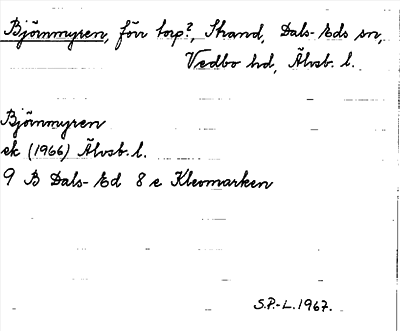 Björnmyren, förr torp?, Strand, Dals-Eds sn,
Vedbo hd, Älvsb. l.
Björnmyren
ek (1966) Älvsb. l.
9 B Dals-Ed 8 e Klevmarken
S.P.-L. 1967.